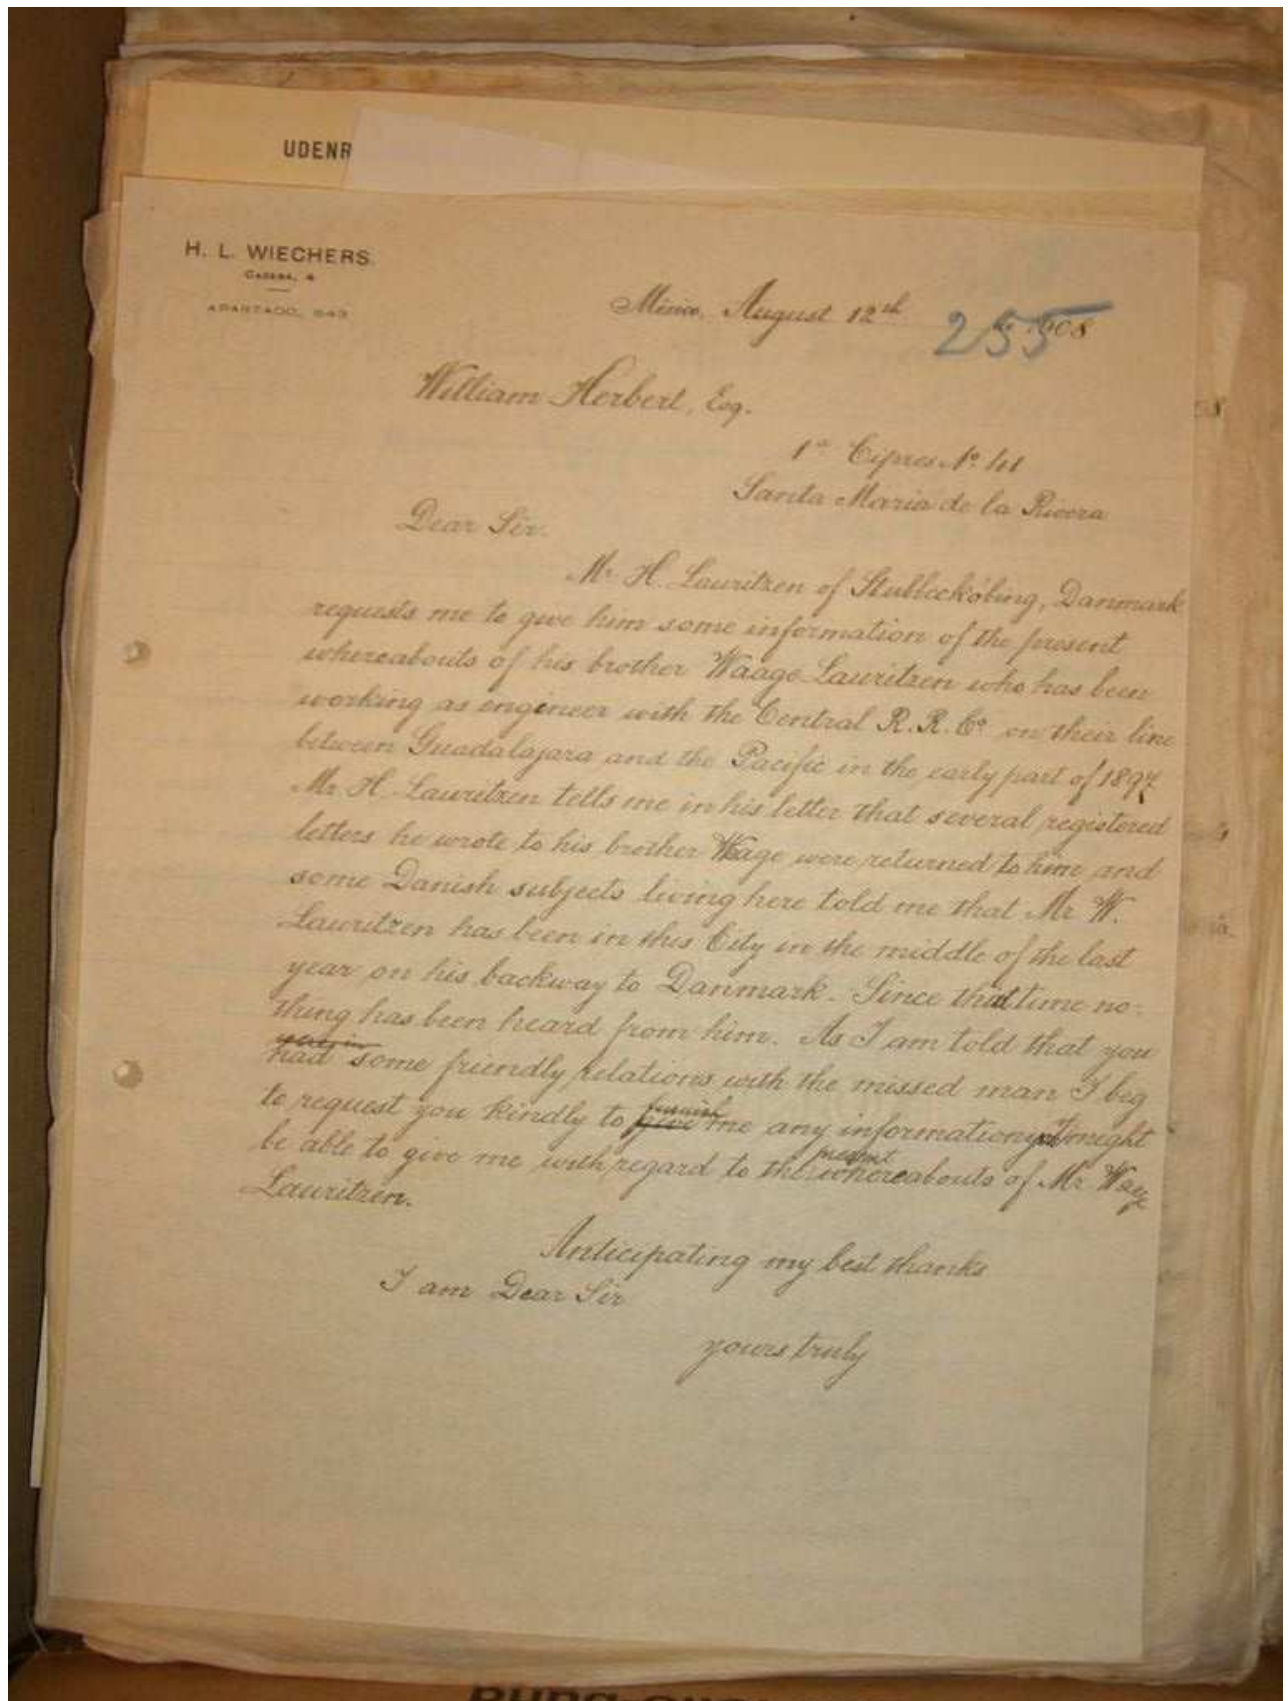 UDENR
H. L. WIECHERS.
CADENA, 4
APARTADO, 543
Mexico, August 12th 1908
255
William Herbert, Esq.
1a Cipres No. 141
Santa Maria de la Rivera
Dear Sir.
Mr. H. Lauritzen of Stubbeckóbing, Danmark
requests me to give him some information of the present
whereabouts of his brother Waage Lauritzen who has been
working as engineer with the Central R. R. Co. on their line
between Guadalajara and the Pacific in the early part of 1897.
Mr. H. Lauritzen tells me in his letter that several registered
letters he wrote to his brother Waage were returned to him and
some Danish subjects living here told me that Mr. W.
Lauritzen has been in this City in the middle of the last
year on his backway to Danmark. Since that time no-
thing has been heard from him. As I am told that you
had some friendly relations with the missed man I beg
to request you kindly to furnish me any information you might
be able to give me with regard to the present whereabouts of Mr. Waage
Lauritzen.
Anticipating my best thanks
I am Dear Sir
yours truly